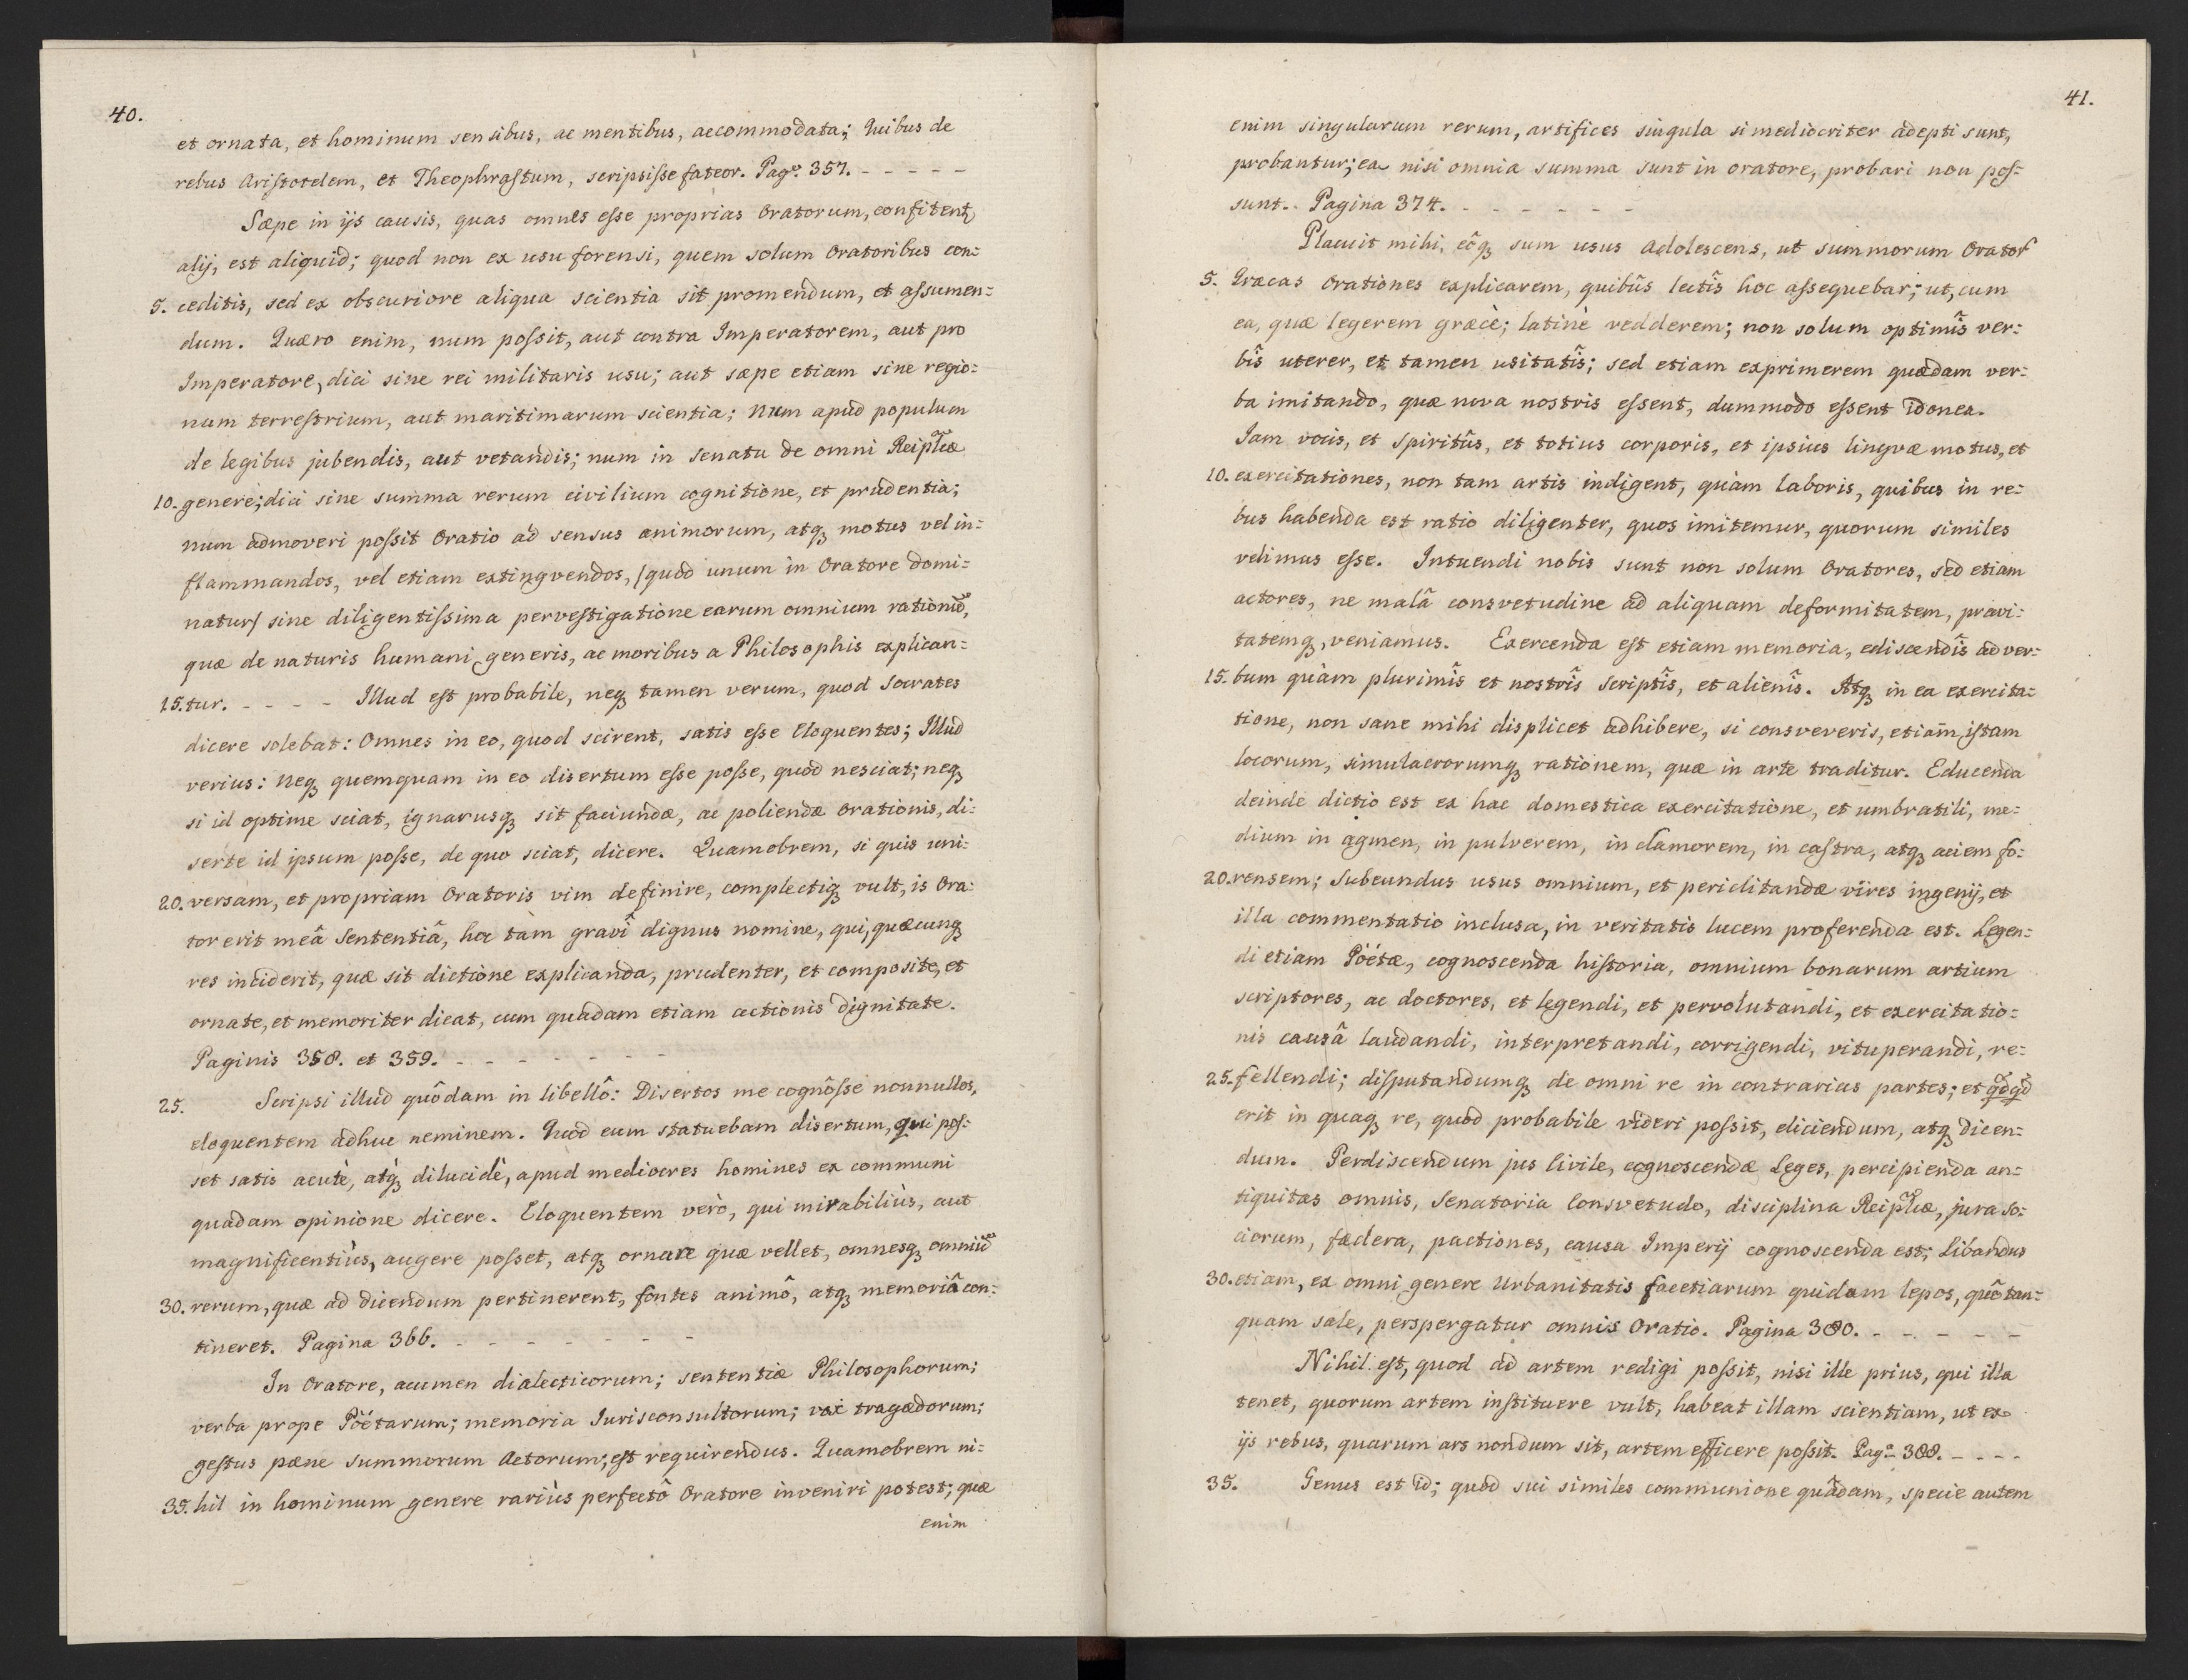 40.
et ornata, et hominum sensibus, ac mentibus, accommodata; Quibus de
rebus Aristotelem, et Theophrastum, scripsisse fateor. Pag.ᵃ 357. - - - - -
Sæpe in ijs causis, quas omnes esse proprias Oratorum, confitent
alij, est aliquid; quod non ex usu forensi, quem solum Oratoribus con=
5. ceditis, sed ex obscuriore aliqua scientia sit promendum, et assumen=
dum. Quæro enim, num possit, aut contra Imperatorem, aut pro
Imperatore, dici sine rei militaris usu; aut sæpe etiam sine regio=
num terrestrium, aut maritimarum scientia; Num apud populum
de legibus jubendis, aut vetandis; num in Senatu de omni Reiplicæ
10. genere; dici sine summa rerum civilium cognitione, et prudentia;
num admoveri possit Oratio ad sensus animorum, atq motus vel in=
flammandos, vel etiam extingvendos, /quod unum in Oratore domi=
natur/ sine diligentissima pervestigatione earum omnium rationū,
quæ de naturis humani generis, ac moribus a Philosophis explican=
15. tur. - - - - Illud est probabile, neq tamen verum, quod Socrates
dicere solebat: Omnes in eo, quod scirent, satis esse Eloquentes; Illud
verius: Neq quemquam in eo disertum esse posse, quod nesciat; neq
si id optime sciat, ignarusq sit faciundæ, ac poliendæ Orationis, di=
serte id ipsum posse, de quo sciat, dicere. Quamobrem, si quis uni=
20. versam, et propriam Oratoris vim definire, complectiq vult, is Ora=
tor erit meâ Sententiâ, hoc tàm gravî dignus nomine, qui, quæcunq
res inciderit, quæ sit dictione explicanda, prudenter, et composite, et
ornate, et memoriter dicat, cum quadam etiam actionis dignitate.
Paginis 358. et 359. - - - - - - -
25. Scripsi illud quôdam in libellô: Disertos me cognôsse nonnullos,
eloquentem adhuc neminem. Quod eum statuebam disertum, qui pos=
set satis acutè, atq dilucidè, apud mediocres homines ex communi
quadam opinione dicere. Eloquentem verò, qui mirabiliùs, aut
magnificentiùs, augere posset, atq ornare quæ vellet, omnesq omniū
30. rerum, quæ ad dicendum pertinerent, fontes animô, atq memoriâ con=
tineret. Pagina 366. - - - - - - -
In Oratore, acumen dialecticorum; sententiæ Philosophorum;
verba prope Pöétarum; memoria Jurisconsultorum; vox tragædorum;
gestus pæne summorum Actorum; est requirendus. Quamobrem ni=
35. hil in hominum genere rariùs perfectô Oratore inveniri potest; quæ
enim
41.
enim singularum rerum, artifices singula si mediocriter adepti sunt,
probantur; ea nisi omnia summa sunt in oratore, probari non pos=
sunt. Pagina 374. - - - - - -
Placuit mihi, eôq sum usus Adolescens, ut summorum Orator
5. Græcas Orationes explicarem, quibûs lectîs hoc assequebar; ut, cum
ea, quæ legerem græcè; latinè redderem; non solum optimîs ver=
bîs uterer, et tamen usitatîs; sed etiam exprimerem quædam ver=
ba imitando, quæ nova nostris essent, dummodo essent idonea.
Jam vocis, et Spiritûs, et totius corporis, et ipsius lingvæ motus, et
10. exercitationes, non tam artis indigent, quàm laboris, quibus in re=
bus habenda est ratio diligenter, quos imitemur, quorum similes
velimus esse. Intuendi nobis sunt non solum Oratores, sed etiam
actores, ne malâ consvetudine ad aliquam deformitatem, pravi=
tatemq, veniamus. Exercenda est etiam memoria, ediscendîs ad ver=
15. bum quàm plurimîs et nostrîs scriptîs, et alienîs. Atq in ea exercita=
tione, non sane mihi displicet adhibere, si consveveris, etiam, istam
locorum, simulacrorumq rationem, quæ in arte traditur. Educenda
deinde dictio est ex hac domestica exercitatione, et umbratili, me=
dium in agmen, in pulverem, in clamorem, in castra, atq aciem fo=
20. rensem; Subeundus usus omnium, et periclitandæ vires ingenij, et
illa commentatio inclusa, in veritatis lucem proferenda est. Legen=
di etiam Pöétæ, cognoscenda historia, omnium bonarum artium
scriptores, ac doctores, et legendi, et pervolutandi, et exercitatio=
nis causâ laudandi, interpretandi, corrigendi, vituperandi, re=
25. fellendi; disputandumq de omni re in contrarias partes; et qdqd
erit in quaq re, quod probabile videri possit, eliciendum, atq dicen=
dum. Perdiscendum jus Civile, cognoscendæ Leges, percipienda an=
tiquitas omnis, Senatoria Consvetudo, disciplina Reiplicæ, jura so=
ciorum, fædera, pactiones, causa Imperij cognoscenda est; Libandus
30. etiam, ex omni genere Urbanitatis facetiarum quidam lepos, quô tan=
quam sale, perspergatur omnis Oratio. Pagina 380. - - - - -
Nihil est, quod ad artem redigi possit, nisi ille prius, qui illa
tenet, quorum artem instituere vult, habeat illam scientiam, ut ex
ijs rebus, quarum ars nondum sit, artem efficere possit. Pag.ᵃ 388. - - - -
35. Genus est id; quod sui similes communione quâdam, specie autem